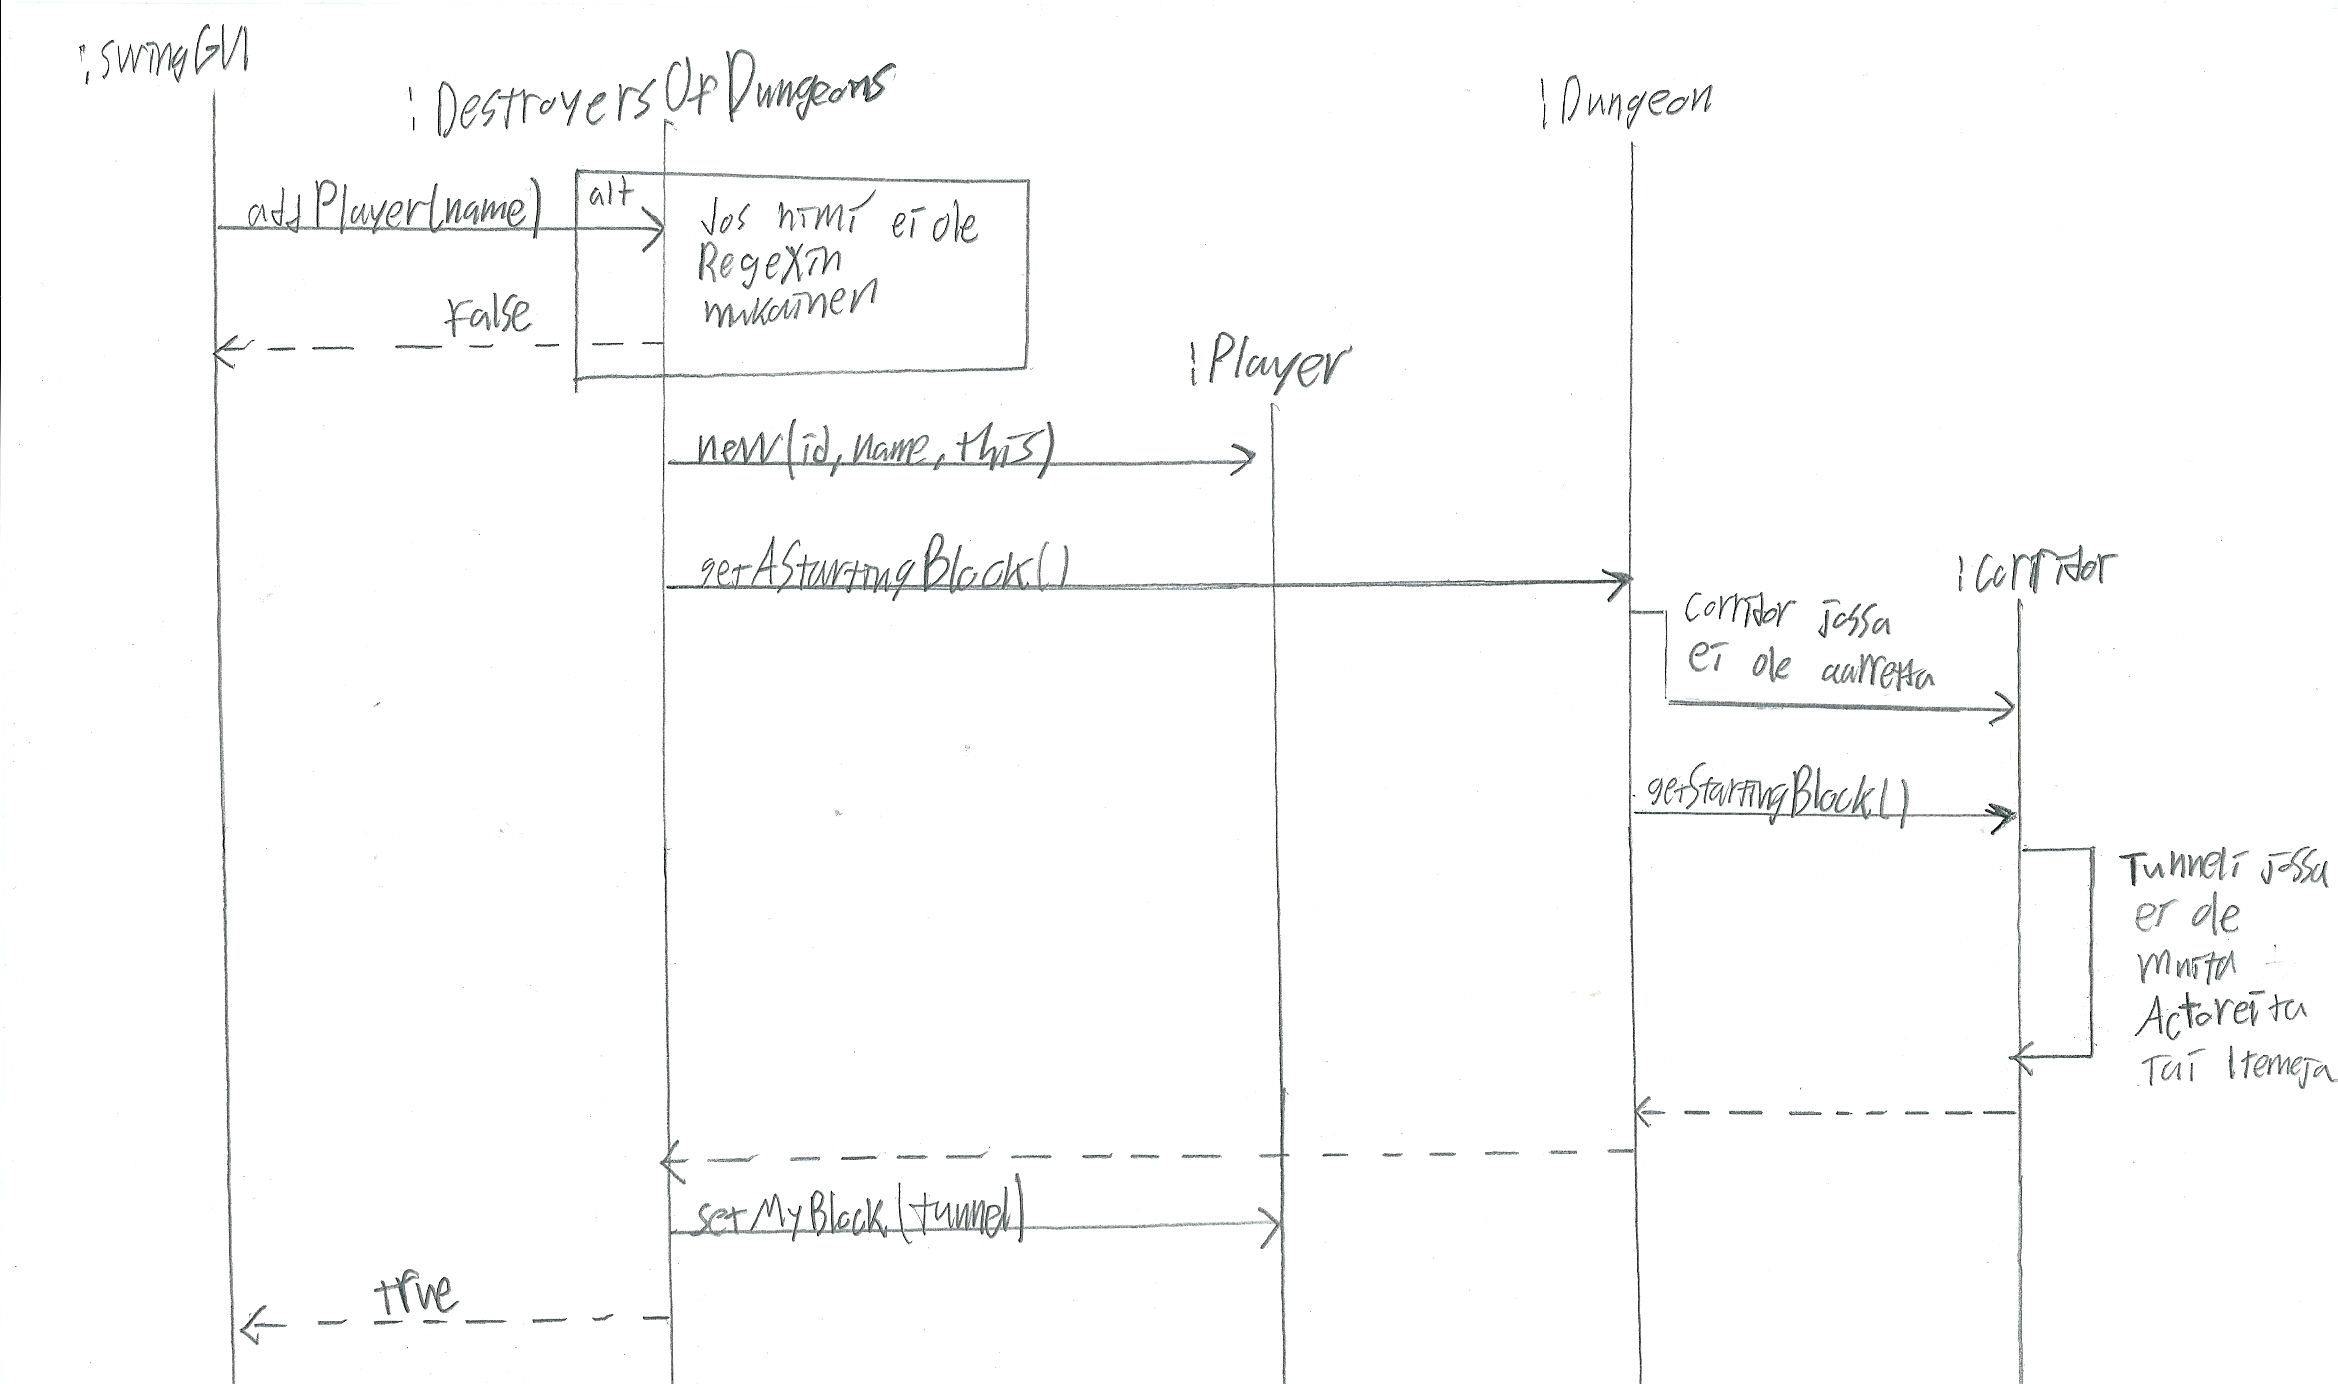 :swingGUI
:DestroyersOfDungeons
:Dungeon
addPlayer(name)
alt
Jos nimi ei ole
RegeXin
mukainen
False
:Player
new(id, name, this)
getAStartingBlock()
:Corridor
Corridor jossa
ei ole aarretta
getStartingBlock()
Tunneli jossa
ei ole
muita
Actoreita
Tai Itemeja
setMyBlock(tunnel)
true